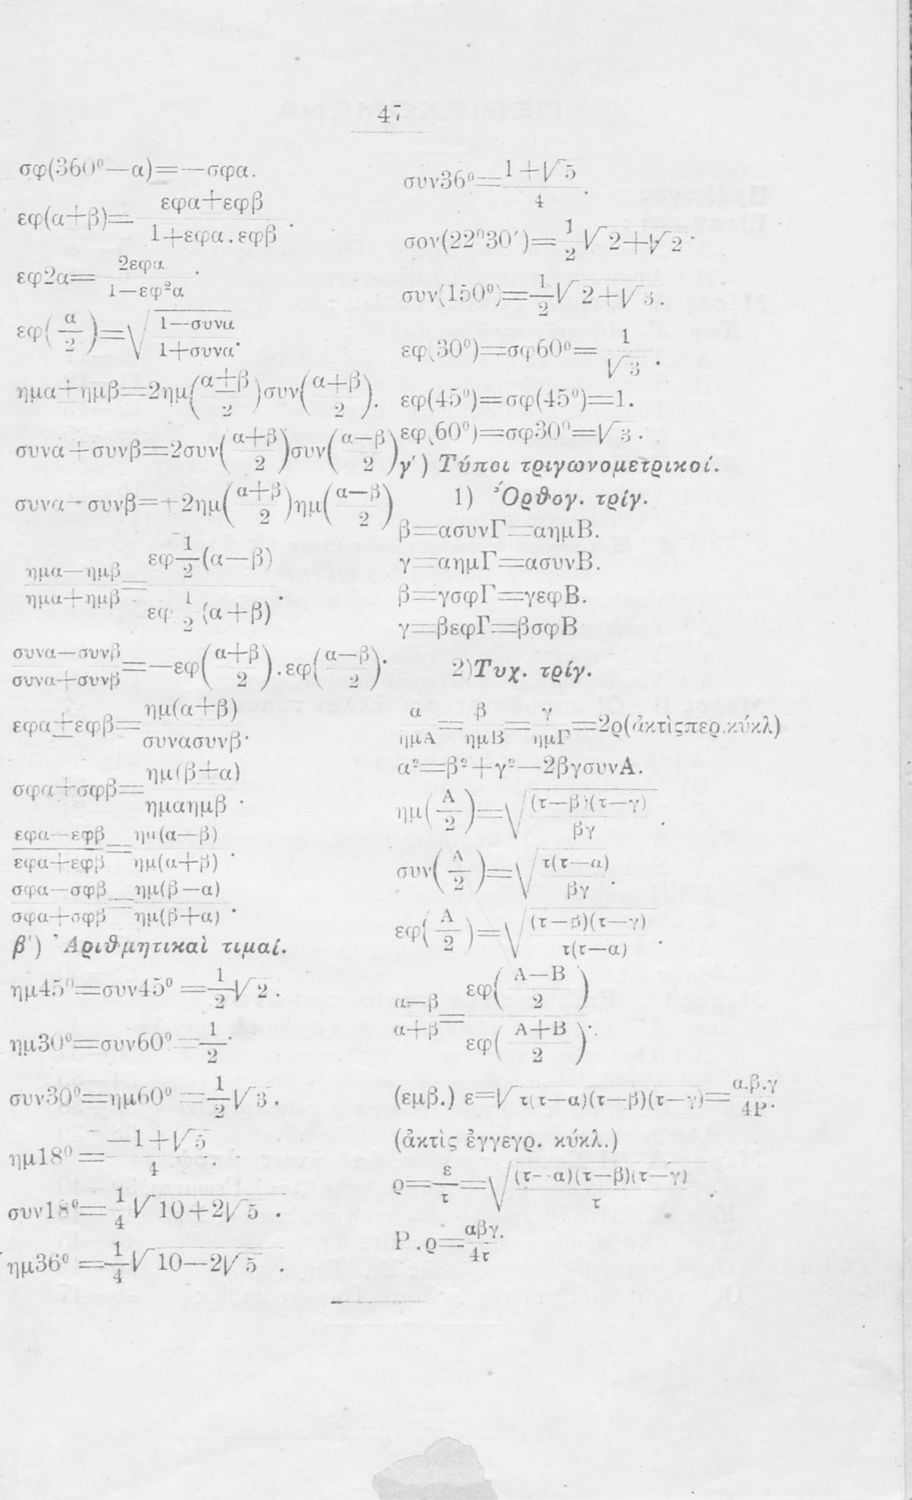 47
σφ(360°—α)=—σφα.
εφ(α+β)= εφα+εφβ / 1+εφα.εφβ .
εφ2α= 2εφα / 1—εφ²α .
εφ(α/2)=√ 1—συνα / 1+συνα.
ημα±ημβ=2ημ(α±β / 2)συν(α+β / 2).
συνα+συνβ=2συν(α+β / 2)συν(α—β / 2)
συνα-συνβ=+2ημ(α+β / 2)ημ(α—β / 2)
ημα—ημβ / ημα+ημβ = εφ½(α—β) / εφ ½(α+β) .
συνα—συνβ / συνα+συνβ =—εφ(α+β / 2).εφ(α—β / 2).
εφα±εφβ= ημ(α±β) / συνασυνβ.
σφα+σφβ= ημ(β+α) / ημαημβ .
εφα—εφβ / εφα+εφβ = ημ(α—β) / ημ(α+β) .
σφα—σφβ / σφα+σφβ = ημ(β—α) / ημ(β+α) .
β') Ἀριθμητικαὶ τιμαί.
ημ45°=συν45° =½√2 .
ημ30°=συν60° =½.
συν30°=ημ60° =½√3 .
ημ18° = —1+√5 / 4 .
συν18°= ¼√10+2√5 .
ημ36° =¼√10—2√5 .
συν36°= 1+√5 / 4 .
σον(22°30′)= ½√2+√2 .
συν(150°)=½√2+√3 .
εφ(30°)=σφ60°= 1 / √3 .
εφ(45°)=σφ(45°)=1.
εφ(60°)=σφ30°=√3 .
γ') Τύποι τριγωνομετρικοί.
1) Ὀρθογ. τρίγ.
β=ασυνΓ=αημΒ.
γ=αημΓ=ασυνΒ.
β=γσφΓ=γεφΒ.
γ=βεφΓ=βσφΒ
2)Τυχ. τρίγ.
α / ημΑ = β / ημΒ = γ / ημΓ =2ρ(ἀκτὶςπερ.κύκλ)
α²=β²+γ²—2βγσυνΑ.
ημ(Α/2)=√ (τ—β)(τ—γ) / βγ .
συν(Α/2)=√ τ(τ—α) / βγ .
εφ(Α/2)=√ (τ—β)(τ—γ) / τ(τ—α) .
α—β / α+β = εφ(Α—Β / 2) / εφ(Α+Β / 2) .
(εμβ.) ε=√τ(τ—α)(τ—β)(τ—γ)= α.β.γ / 4Ρ.
(ἀκτὶς ἐγγεγρ. κύκλ.)
ρ= ε / τ =√ (τ-α)(τ—β)(τ—γ) / τ .
Ρ.ρ= αβγ. / 4τ